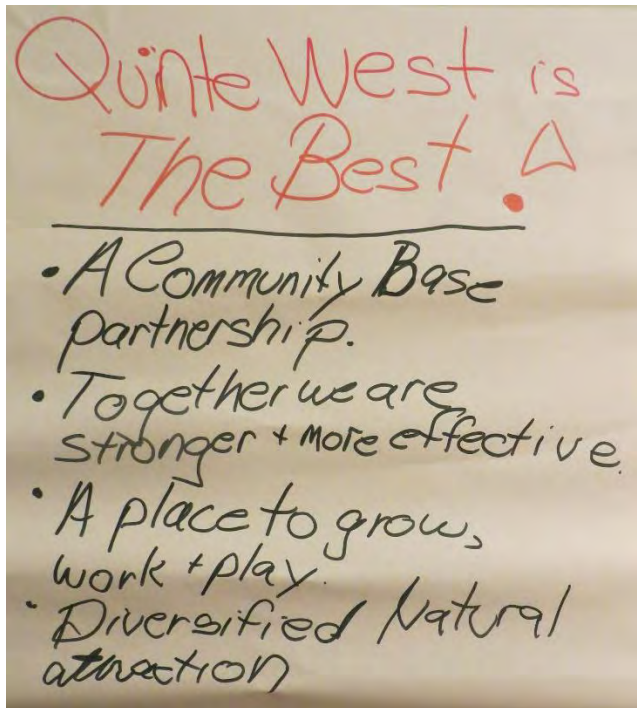 Quinte West is
The Best!
• A Community Base
partnership.
• Together we are
stronger + more effective.
• A place to grow,
work + play.
• Diversified Natural
attraction